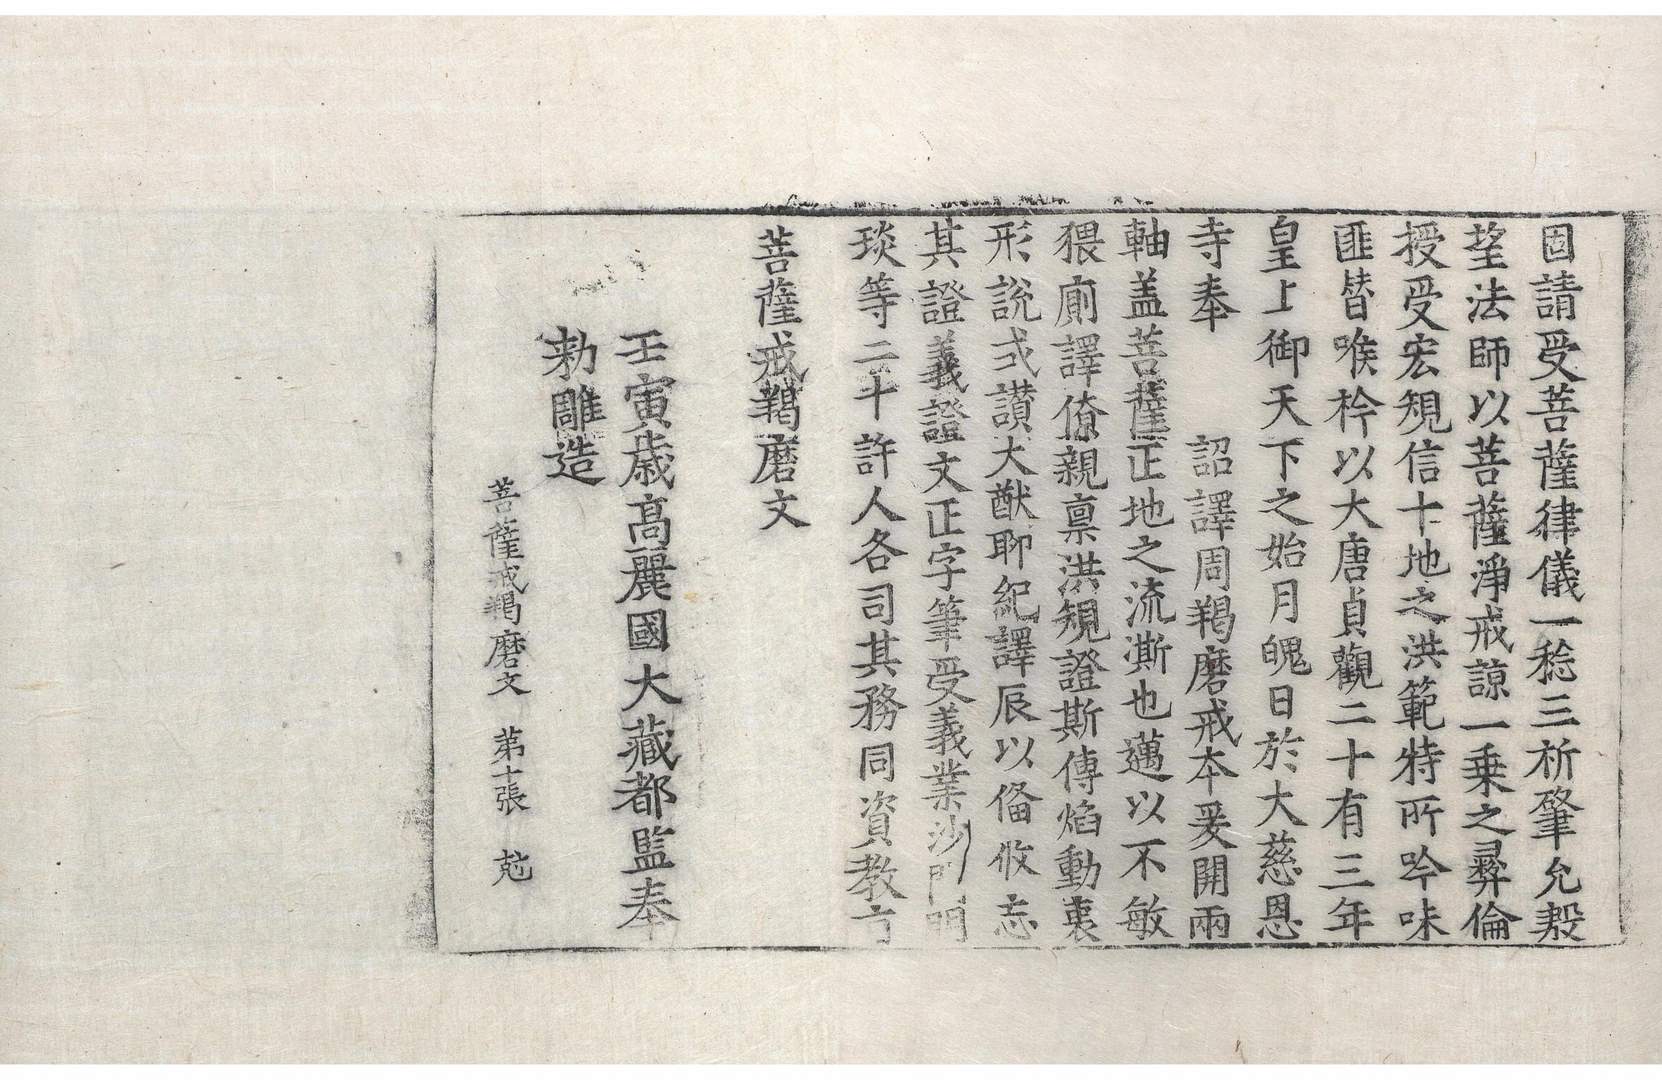 固請受菩薩律儀一稔三祈肇允慇
望法師以菩薩淨戒諒一乗之彛倫
授受宏規信十地之洪範特所吟味
匪替喉衿以大唐貞觀二十有三年
皇上御天下之始月魄日於大慈恩
寺奉　詔譯周羯磨戒本爰開兩
軸盖菩薩正地之流澌也邁以不敏
猥廁譯僚親禀洪規證斯傳焰動衷
形說或讃大猷聊紀譯辰以俻攸忘
其證義證文正字筆受義業沙門明
琰等二十許人各司其務同資教方
菩薩戒羯磨文
壬寅歳高麗國大藏都監奉
勅雕造
菩薩戒羯磨文　第十張